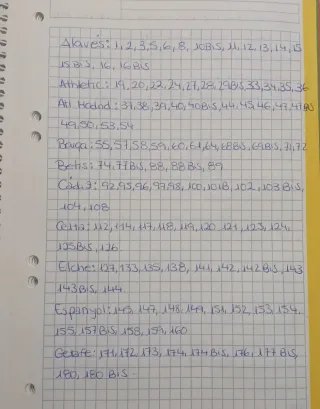 Alavés: 1, 2, 3, 5, 6, 8, 10BIS, 11, 12, 13, 14, 15
15 BIS, 16, 16 BIS
Athletic: 19, 20, 22, 24, 27, 28, 29BIS, 33, 34, 35, 36
At. Madrid: 37, 38, 39, 40, 40BIS, 44, 45, 46, 47, 47BIS
49, 50, 53, 54
Barça: 55, 57, 58, 59, 60, 61, 64, 68BIS, 69BIS, 71, 72
Betis: 74, 77BIS, 88, 88BIS, 89
Cádiz: 92, 95, 96, 97, 98, 100, 101B, 102, 103 BIS,
104, 108
Celta: 112, 114, 117, 118, 119, 120, 121, 123, 124,
125BIS, 126
Elche: 127, 133, 135, 138, 141, 142, 142BIS, 143
143BIS, 144
Espanyol: 145, 147, 148, 149, 151, 152, 153, 154,
155, 157BIS, 158, 159, 160
Getafe: 171, 172, 173, 174, 174BIS, 176, 177BIS,
180, 180 BIS